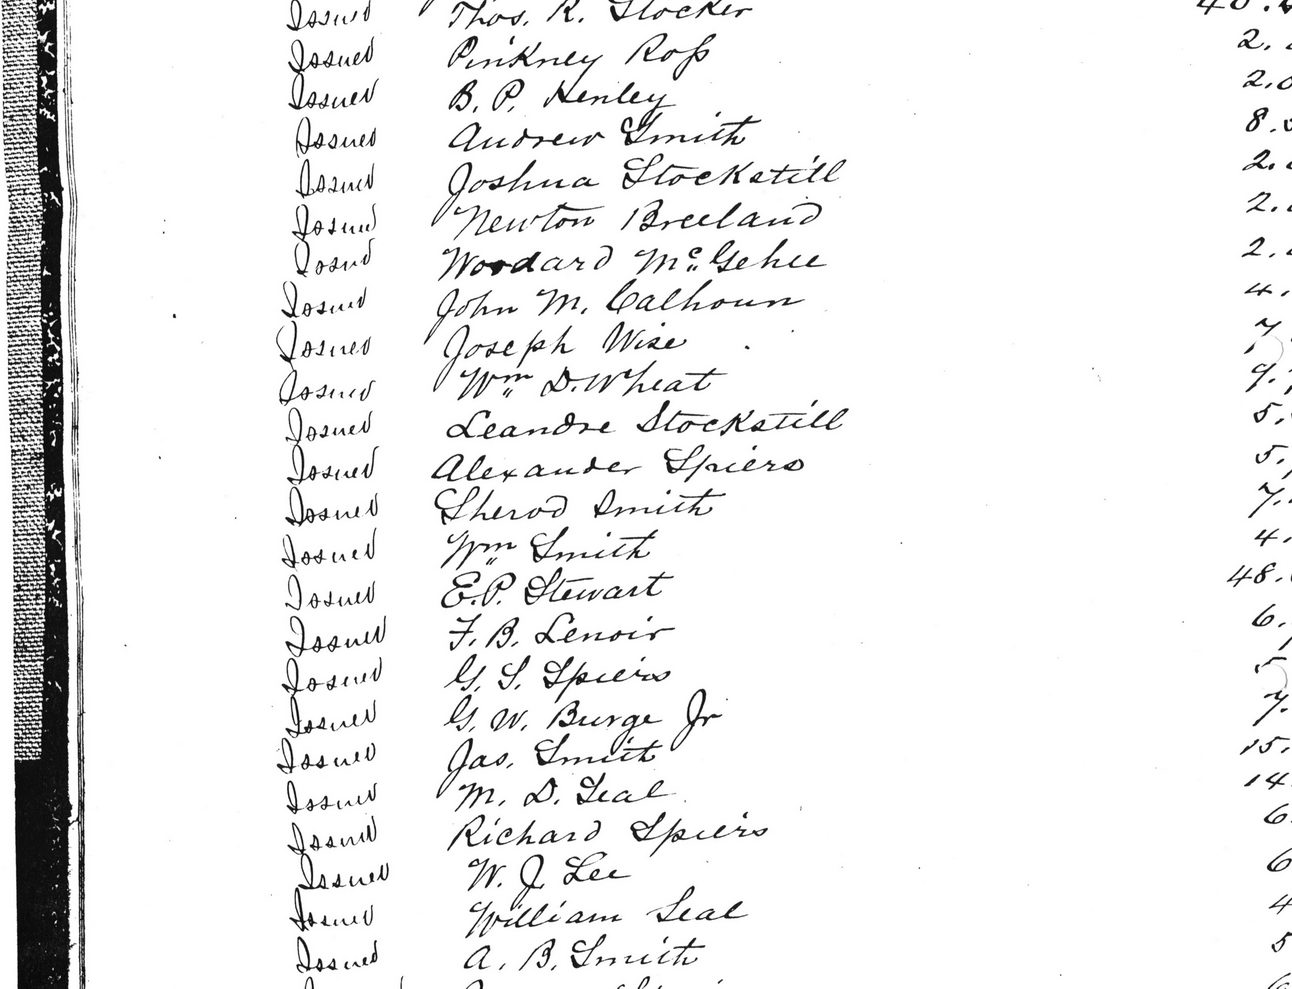 Issued Thos. R. Stocker 40.
Issued Pinkney Ross 2.
Issued B. P. Henley 2.0
Issued Andrew Smith 8.
Issued Joshua Stockstill 2.
Issued Newton Breeland 2.
Issued Woodard McGehee 2.
Issued John M. Calhoun 4.
Issued Joseph Wise 7.
Issued Wm D. Wheat 9.
Issued Leandre Stockstill 5.
Issued Alexander Spiers 5.
Issued Sherod Smith 7.
Issued Wm Smith 4.
Issued E. P. Stewart 48.
Issued F. B. Lenoir 6.
Issued G. S. Spiers 5
Issued G. W. Burge Jr 7.
Issued Jas. Smith 15.
Issued M. D. Seal 14.
Issued Richard Spiers 6.
Issued W. J. Lee 6
Issued William Seal 4
Issued A. B. Smith 5